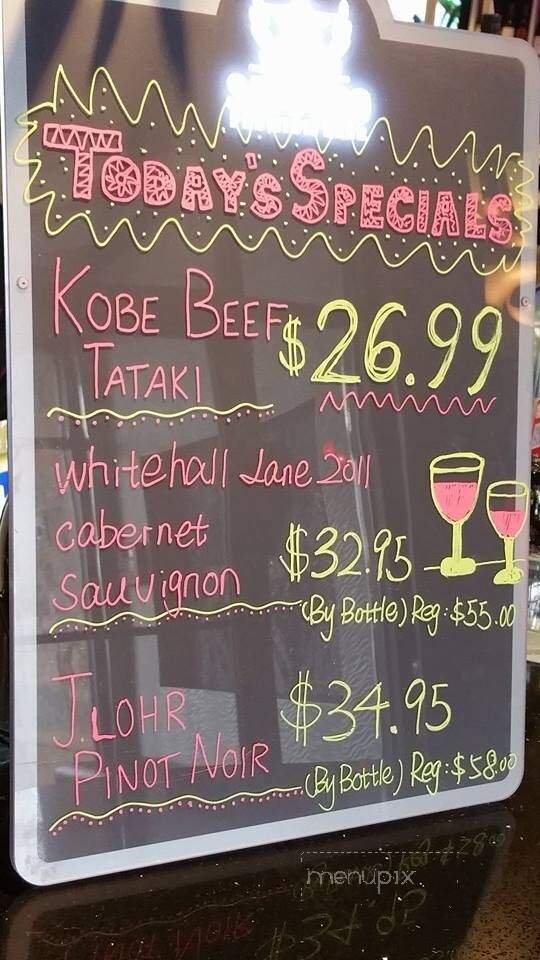 TODAY'S SPECIALS
KOBE BEEF
TATAKI
$26.99
whitehall Lane 2011
cabernet
sauvignon
$32.95
(By Bottle) Reg: $55.00
J.LOHR
PINOT NOIR
$34.95
(By Bottle) Reg: $58.00
menupix